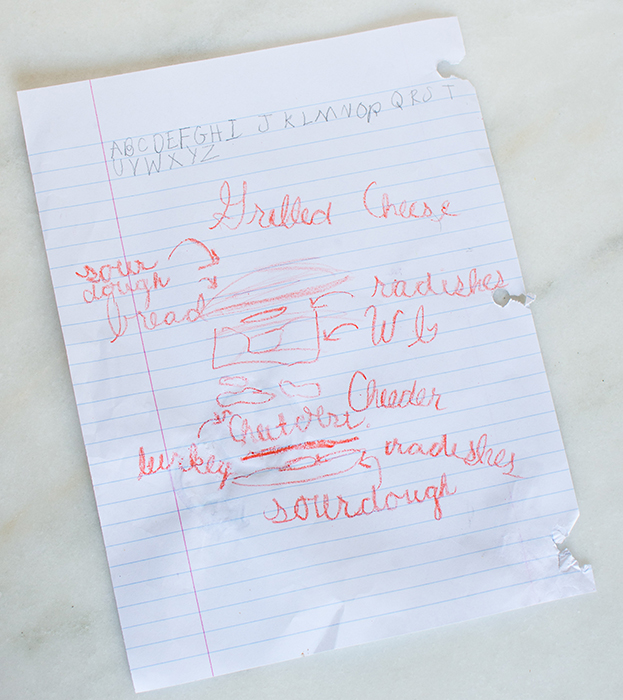 ABCDEFGHI JKLMNOP QRST
UVWXYZ
Grilled Cheese
sour
dough
bread
radishes
W b
Cheeder
turkey
radishes
sourdough